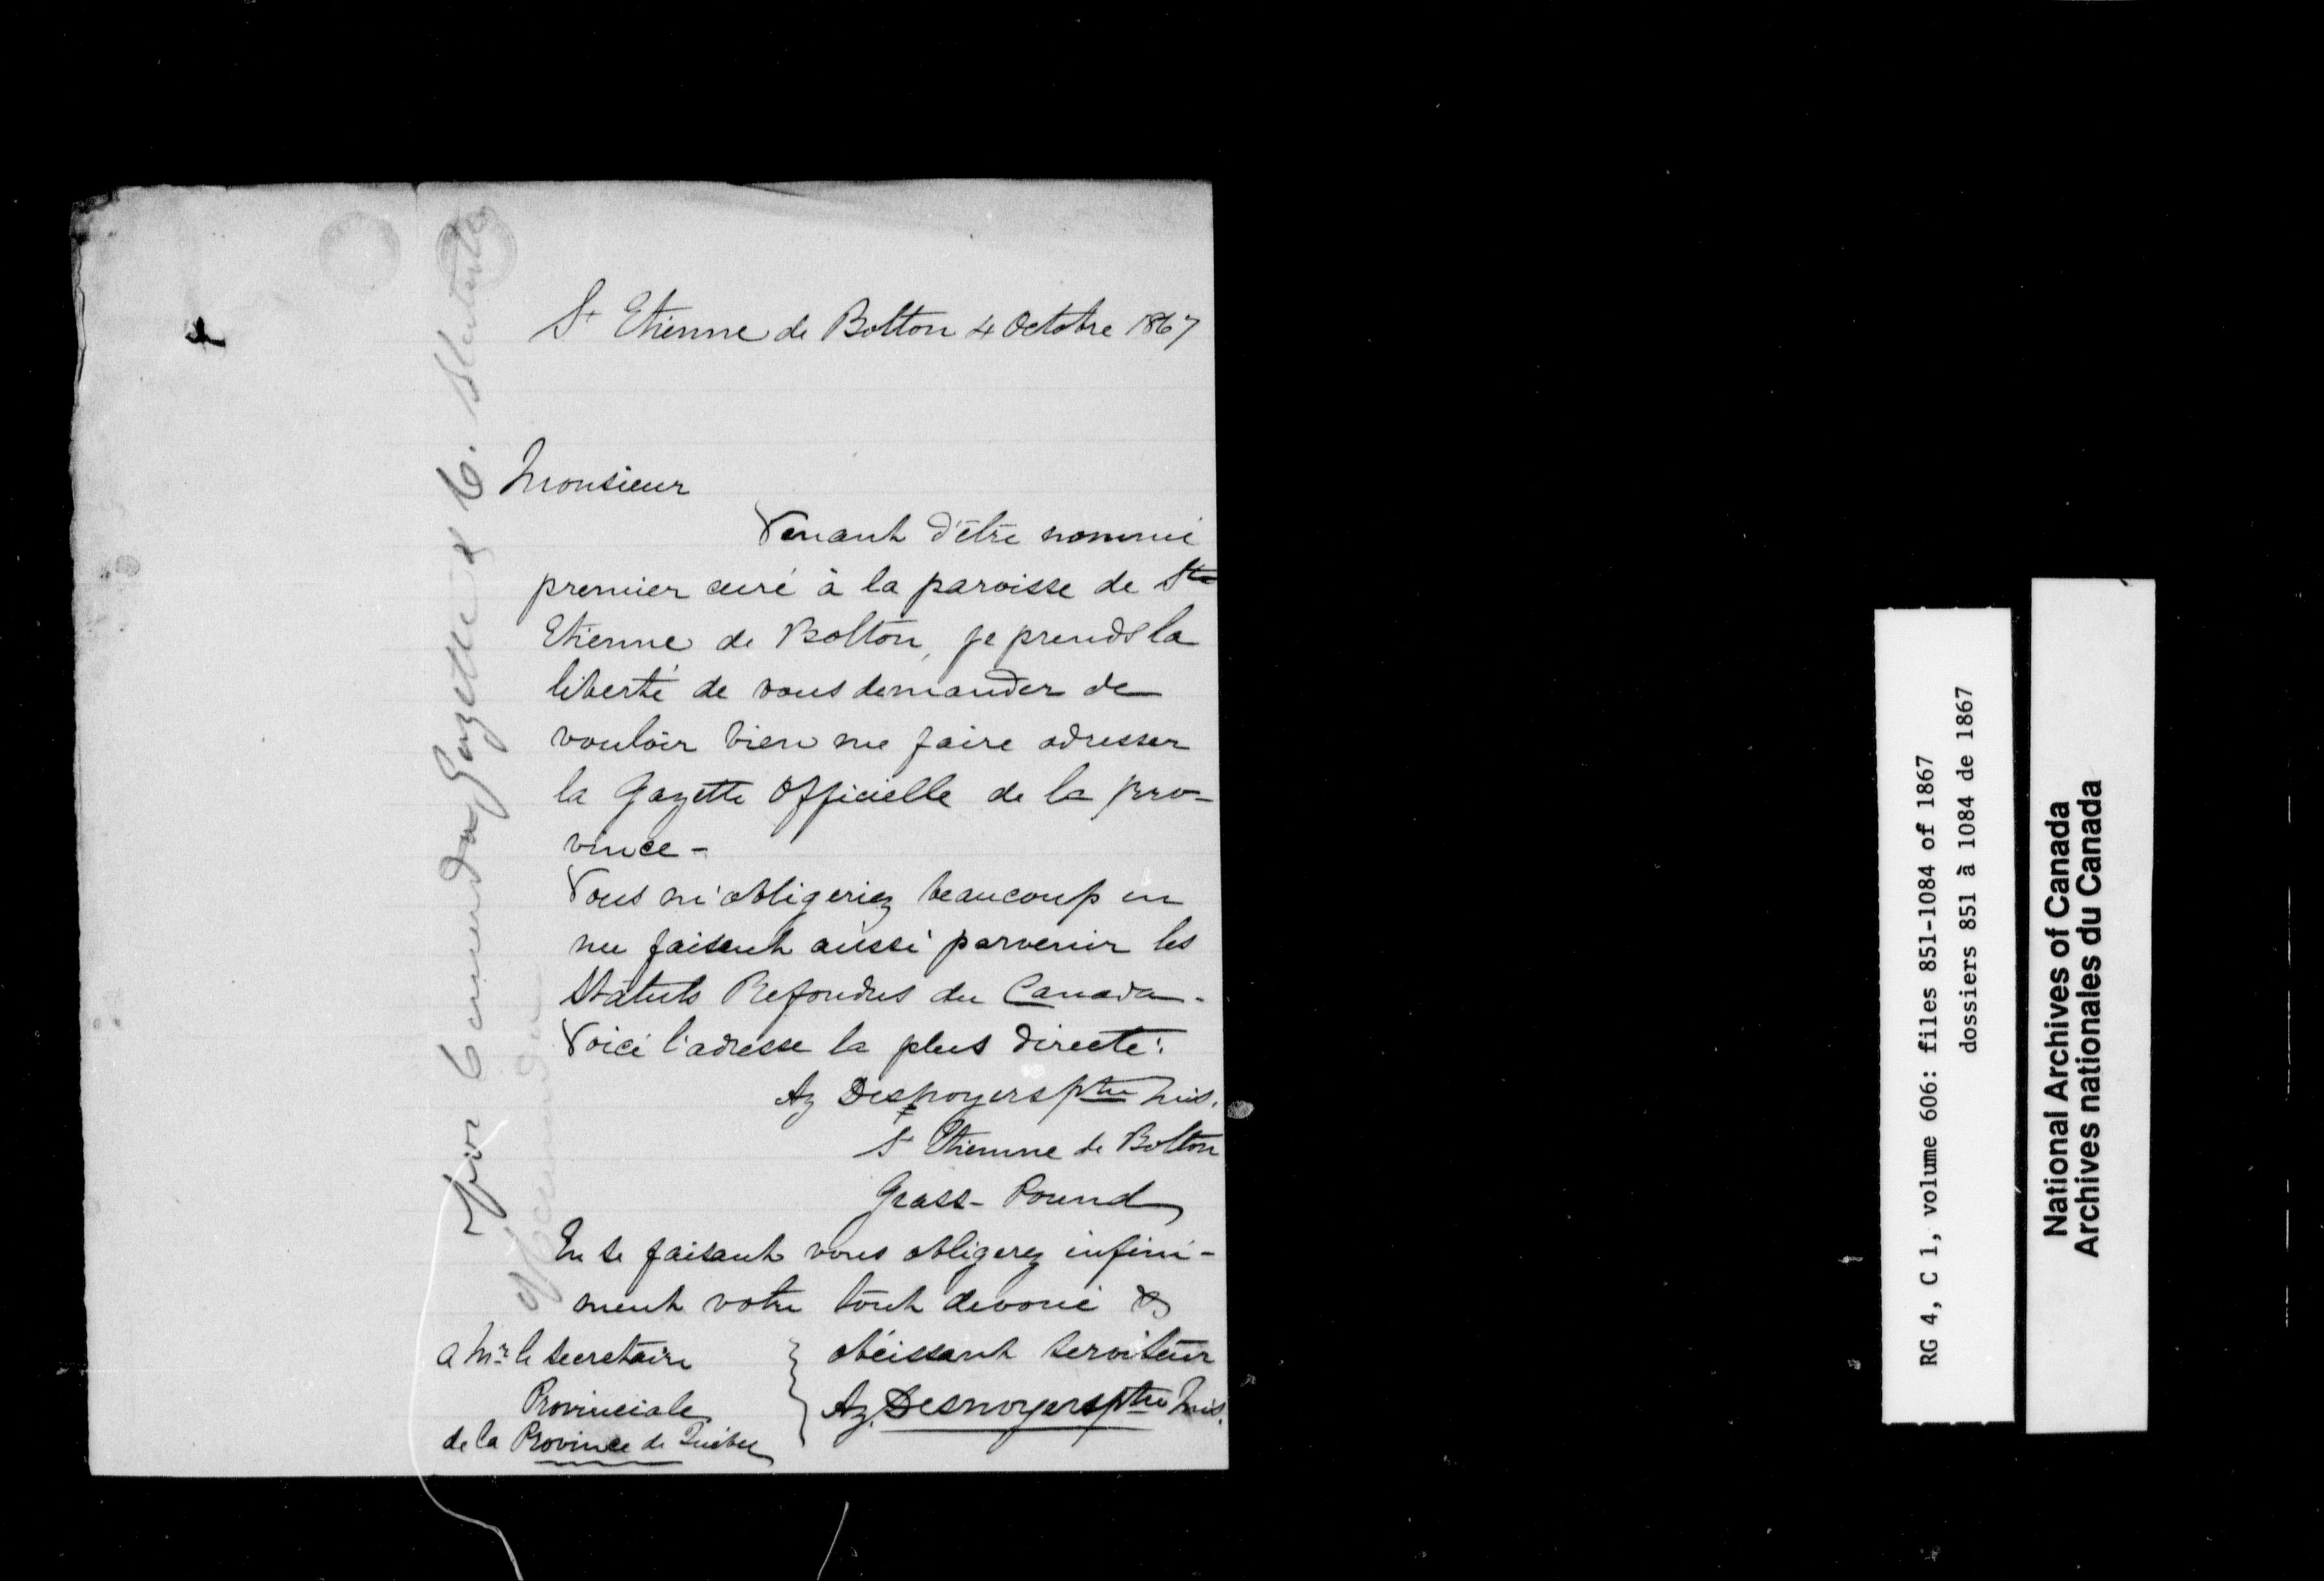 St Etienne de Bolton 4 Octobre 1867
Monsieur
Venant d'être nommé
premier curé à la paroisse de St
Etienne de Bolton, je prends la
liberté de vous demander de
vouloir bien me faire adresser
la Gazette Officielle de la pro-
vince -
Vous m'obligeriez beaucoup en
me faisant aussi parvenir les
Statuts Refondus du Canada -
Voici l'adresse la plus directe:
Az Desnoyers ptre Mis.
St Etienne de Bolton
Grass-Pound
En se faisant vous obligerez infini-
ment votre tout devoué &
obéissant serviteur
Az. Desnoyers ptre Mis.
a Mr le Secretaire
Provinciale
de la Province de Quebec
for Canada Gazette & C. Statutes
RG 4, C 1, volume 606: files 851-1084 of 1867
dossiers 851 à 1084 de 1867
National Archives of Canada
Archives nationales du Canada